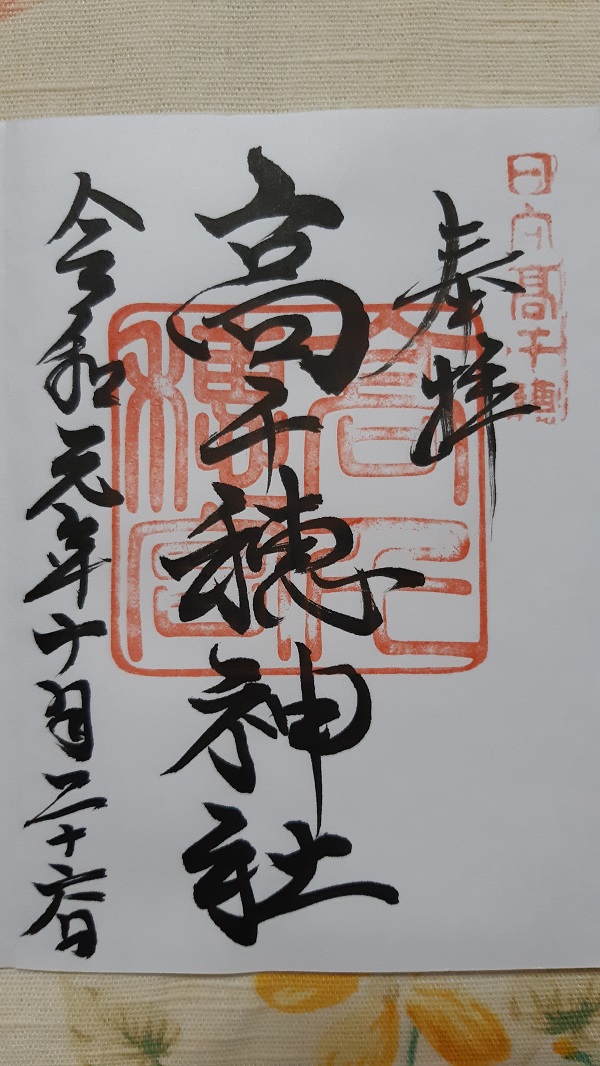 日向髙千穂
奉拝
高千穂神社
高千穂宮
令和元年十月二十六日